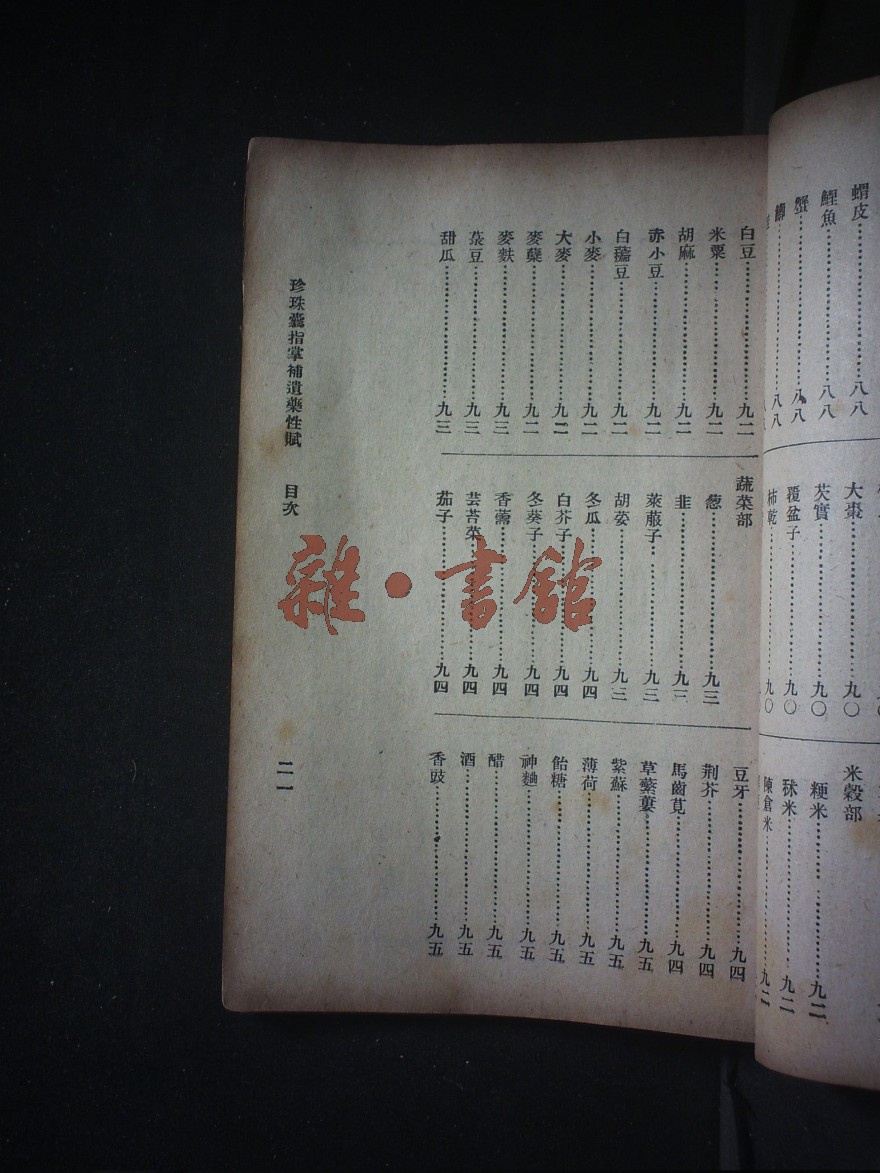 蝟皮……八八
鯉魚……八八
蟹……八八
八八
大棗……九〇
芡實……九〇
覆盆子……九〇
柿乾……九〇
米穀部
粳米……九二
秫米……九二
陳倉米……九二
白豆……九二
米粟……九二
胡麻……九二
赤小豆……九二
白藊豆……九二
小麥……九二
大麥……九二
麥蘖……九二
麥麩……九三
菉豆……九三
甜瓜……九三
蔬菜部
葱……九三
韭……九三
萊菔子……九三
胡荽……九三
冬瓜……九四
白芥子……九四
冬葵子……九四
香薷……九四
芸苔菜……九四
茄子……九四
豆牙……九四
荆芥……九四
馬齒莧……九四
草蘩蔞……九五
紫蘇……九五
薄荷……九五
飴糖……九五
神麯……九五
醋……九五
酒……九五
香豉……九五
珍珠囊指掌補遺藥性賦 目次
二一
雜·書館